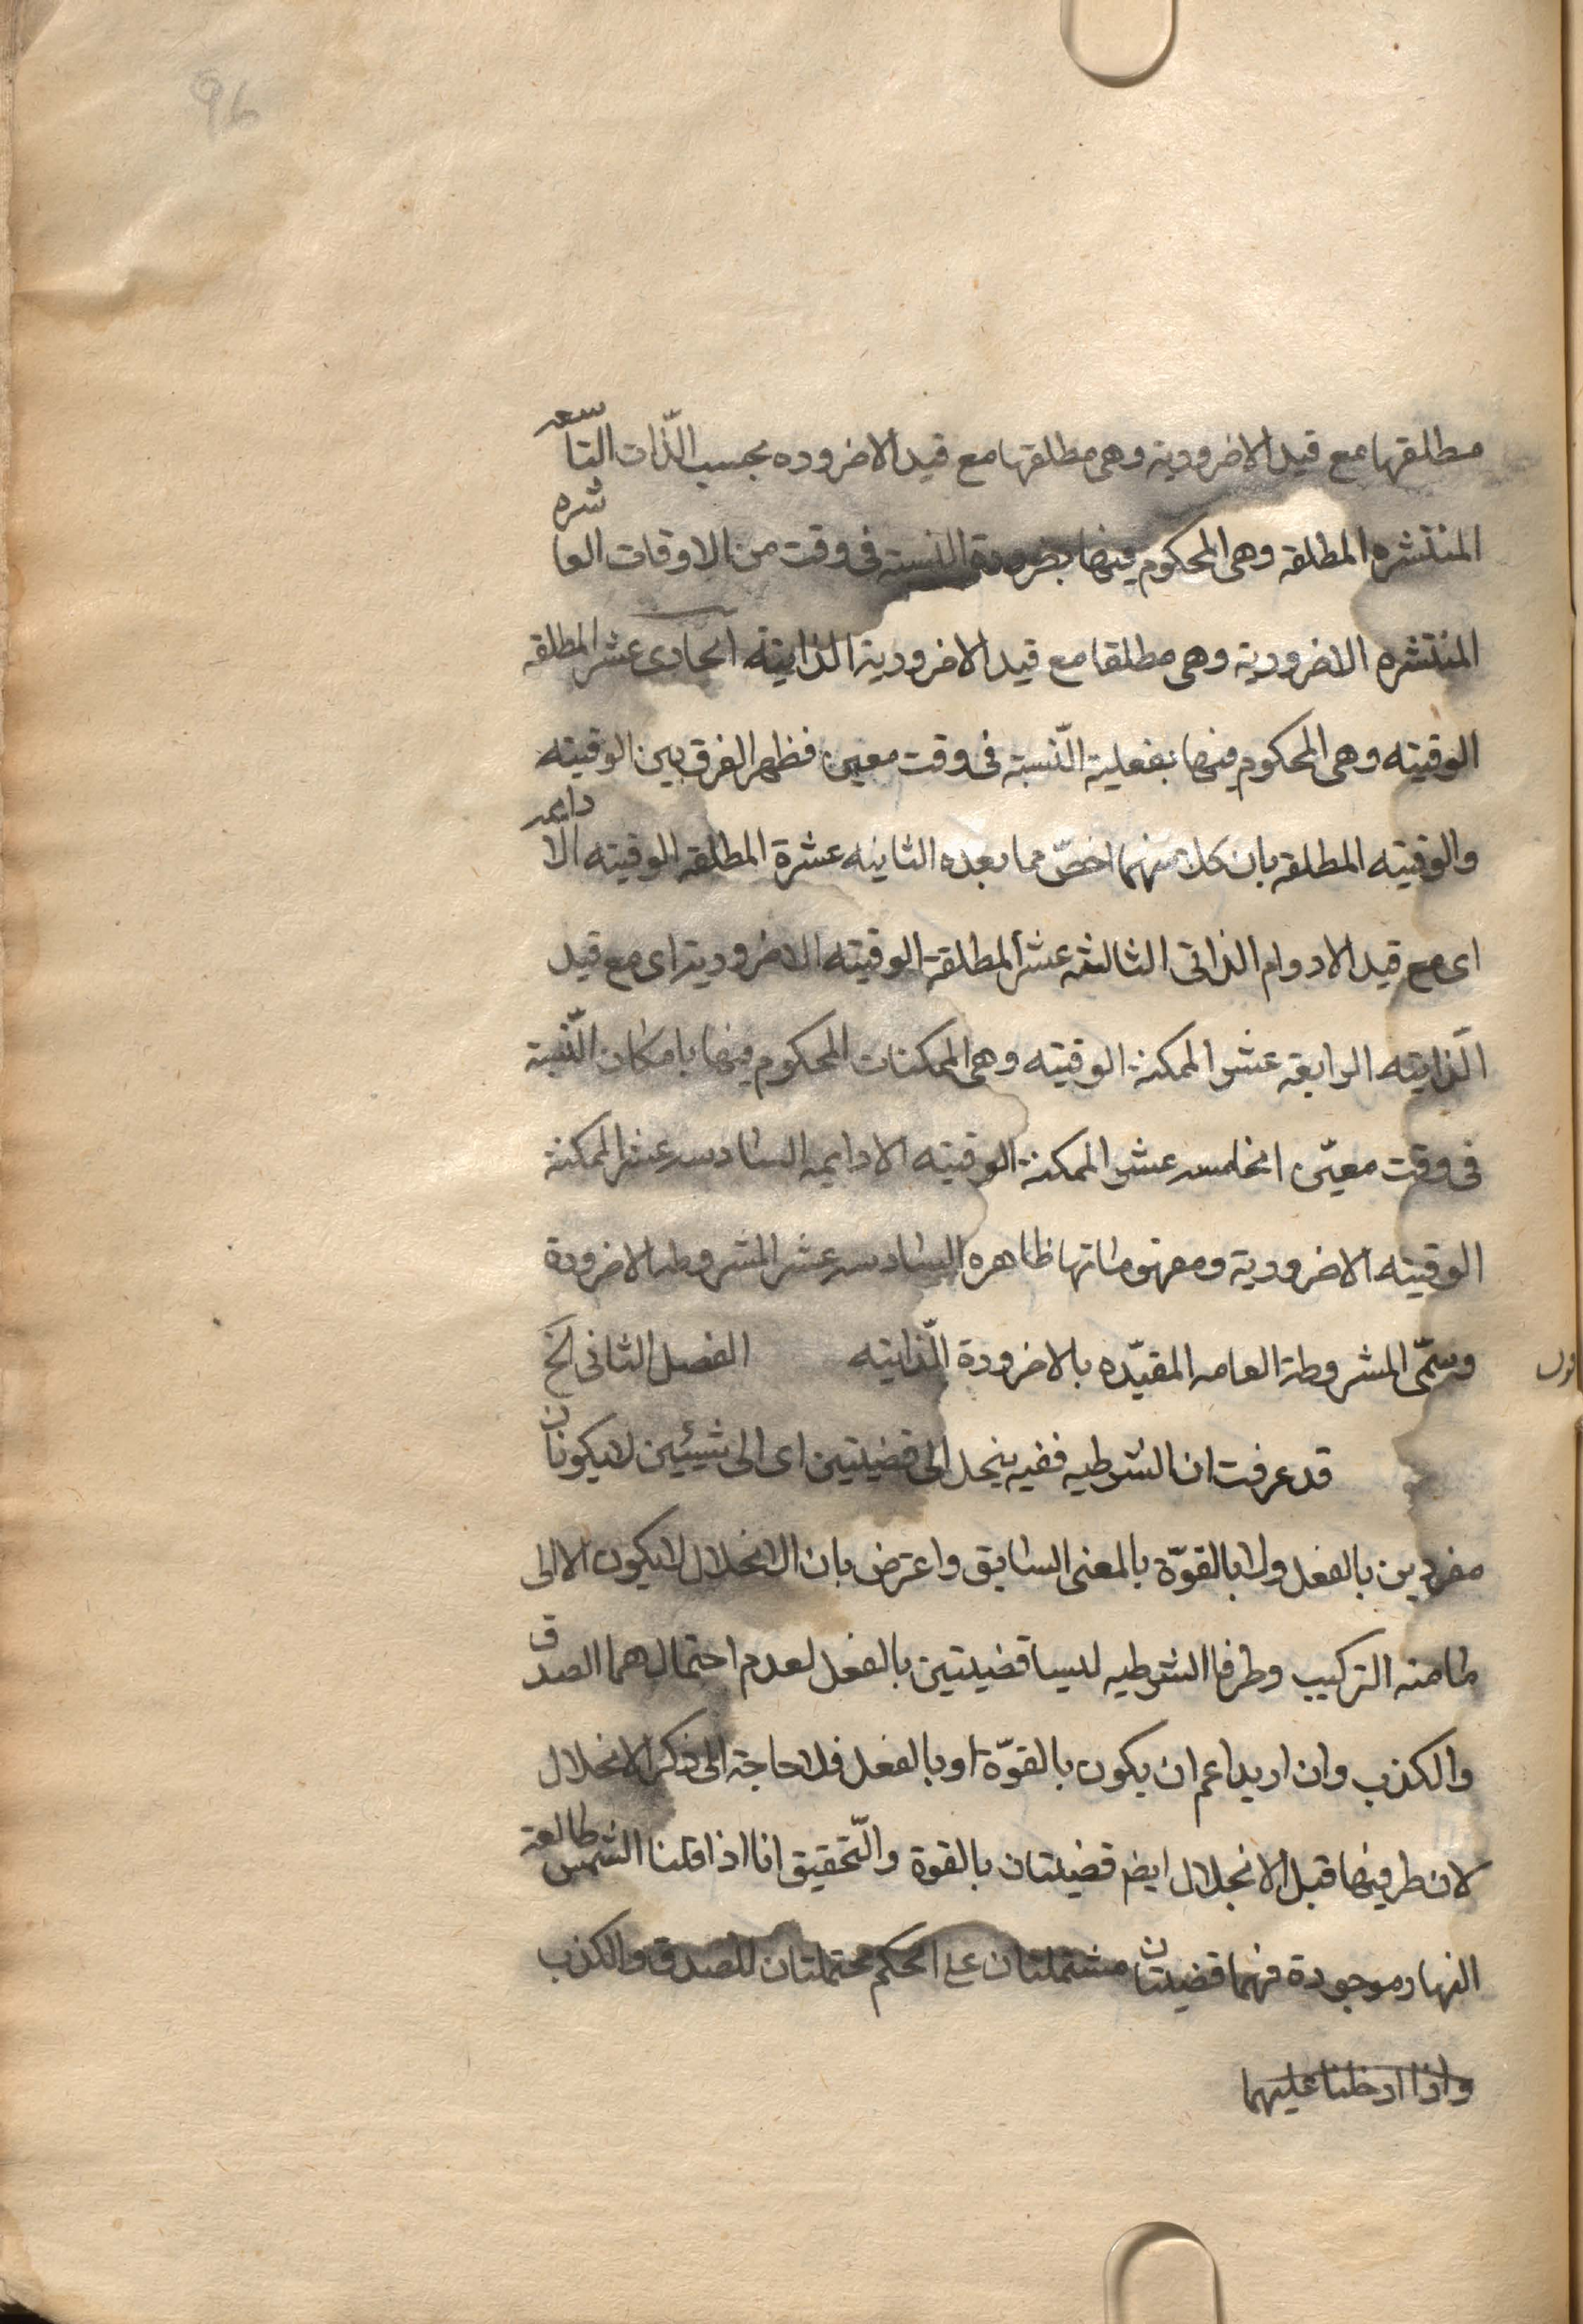 96
مطلقتها مع قيد الاضرورية وهى مطلقتها مع قيد الاضروره بحسب الذّات التّاسعه
المنتشره المطلقه وهى المحكوم فيها بضرورة النسبته فى وقت من الاوقات العاشره
المنتشره الاضرورية وهى مطلقا مع قيد الاضرورية الذايتة الحادى عشر المطلقه
الوقيته وهى المحكوم فيها بفعلية النّسبة فى وقت معين فظهر الفرق بين الوقيته
والوقيته المطلقه بان كلا منهما اخصّ مما بعده الثاينه عشرة المطلقه الوقيته الا دايمه
اى مع قيد الادوام الذاتى الثالثه عشر المطلقة الوقيته الاضرورية اى مع قيد
الّذايته الرابعة عشر الممكنة الوقيته وهى الممكنات المحكوم فيها بامكان النّسبة
فى وقت معيّن الخامسه عشر الممكنة الوقيته الادايمه السادسه عشر الممكنة
الوقيته الاضرورية ومفهوماتها ظاهره السادسه عشر المشروطه الاضرورة
وسمّى المشروطة العامه المقيّده بالاضرورة الّذايته الفصل الثانى الخ
قد عرفت ان الشرطيه ففيه ينحل الى قضيتين اى الى شيئين لايكونان
مفردين بالفعل ولا بالقوّة بالمعنى السابق واعترض بان الانحلال لايكون الا الى
مامنه التركيب وطرفا الشرطيه ليسا قضيتين بالفعل لعدم احتمالهما الصدق
والكذب وان اريد اعم ان يكون بالقوّة او بالفعل فلا حاجة الى ذكر الانحلال
لان طرفيها قبل الانحلال ايضم قضيتان بالقوة والتّحقيق انا اذا قلنا الشمس طالعة
النهار موجودة فهما قضيتان مشتملتان على الحكم محتملتان للصدق والكذب
واذا ادخلنا عليهما